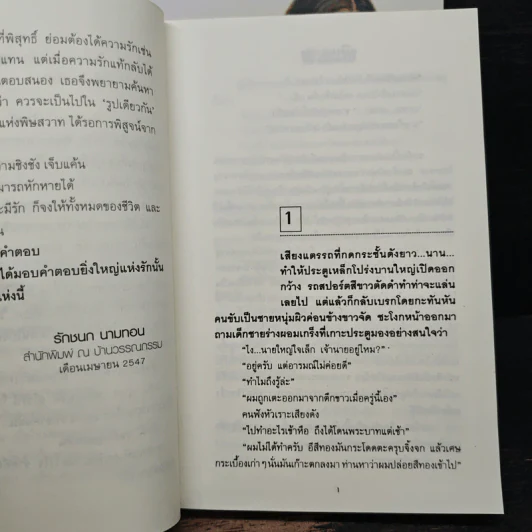 ที่พิสุทธิ์ ย่อมต้องได้ความรักเช่น
แทน แต่เมื่อความรักแท้กลับได้
ตอบสนอง เธอจึงพยายามค้นหา
ว่า ควรจะเป็นไปใน 'รูปเดียวกัน'
แห่งพิษสวาท ได้รอการพิสูจน์จาก
ามชิงชัง เจ็บแค้น
มารถหักหายได้
ะมีรัก ก็จงให้ทั้งหมดของชีวิต และ
น
คำตอบ
ได้มอบคำตอบยิ่งใหญ่แห่งรักนั้น
ห่งนี้
รักชนก นามทอน
สำนักพิมพ์ ณ บ้านวรรณกรรม
เดือนเมษายน 2547
1
เสียงแตรรถที่กดกระชั้นดังยาว...นาน...
ทำให้ประตูเหล็กโปร่งบานใหญ่เปิดออก
กว้าง รถสปอร์ตสีขาวตัดดำทำท่าจะแล่น
เลยไป แต่แล้วก็กลับเบรกโดยกะทันหัน
คนขับเป็นชายหนุ่มผิวค่อนข้างขาวจัด ชะโงกหน้าออกมา
ถามเด็กชายร่างผอมเกร็งที่เกาะประตูมองอย่างสนใจว่า
"ไง...นายใหญ่ใจเล็ก เจ้านายอยู่ไหม?"
"อยู่ครับ แต่อารมณ์ไม่ค่อยดี"
"ทำไมถึงรู้ล่ะ"
"ผมถูกเตะออกมาจากตึกขาวเมื่อครู่นี้เอง"
คนฟังหัวเราะเสียงดัง
"ไปทำอะไรเข้าหือ ถึงได้โดนพระบาทแต่เช้า"
"ผมไม่ได้ทำครับ อีสีทองมันกระโดดตะครุบจิ้งจก แล้วเศษ
กระเบื้องเก่าๆ นั่นมันเก๊าะตกลงมา ท่านหาว่าผมปล่อยสีทองเข้าไป"
1